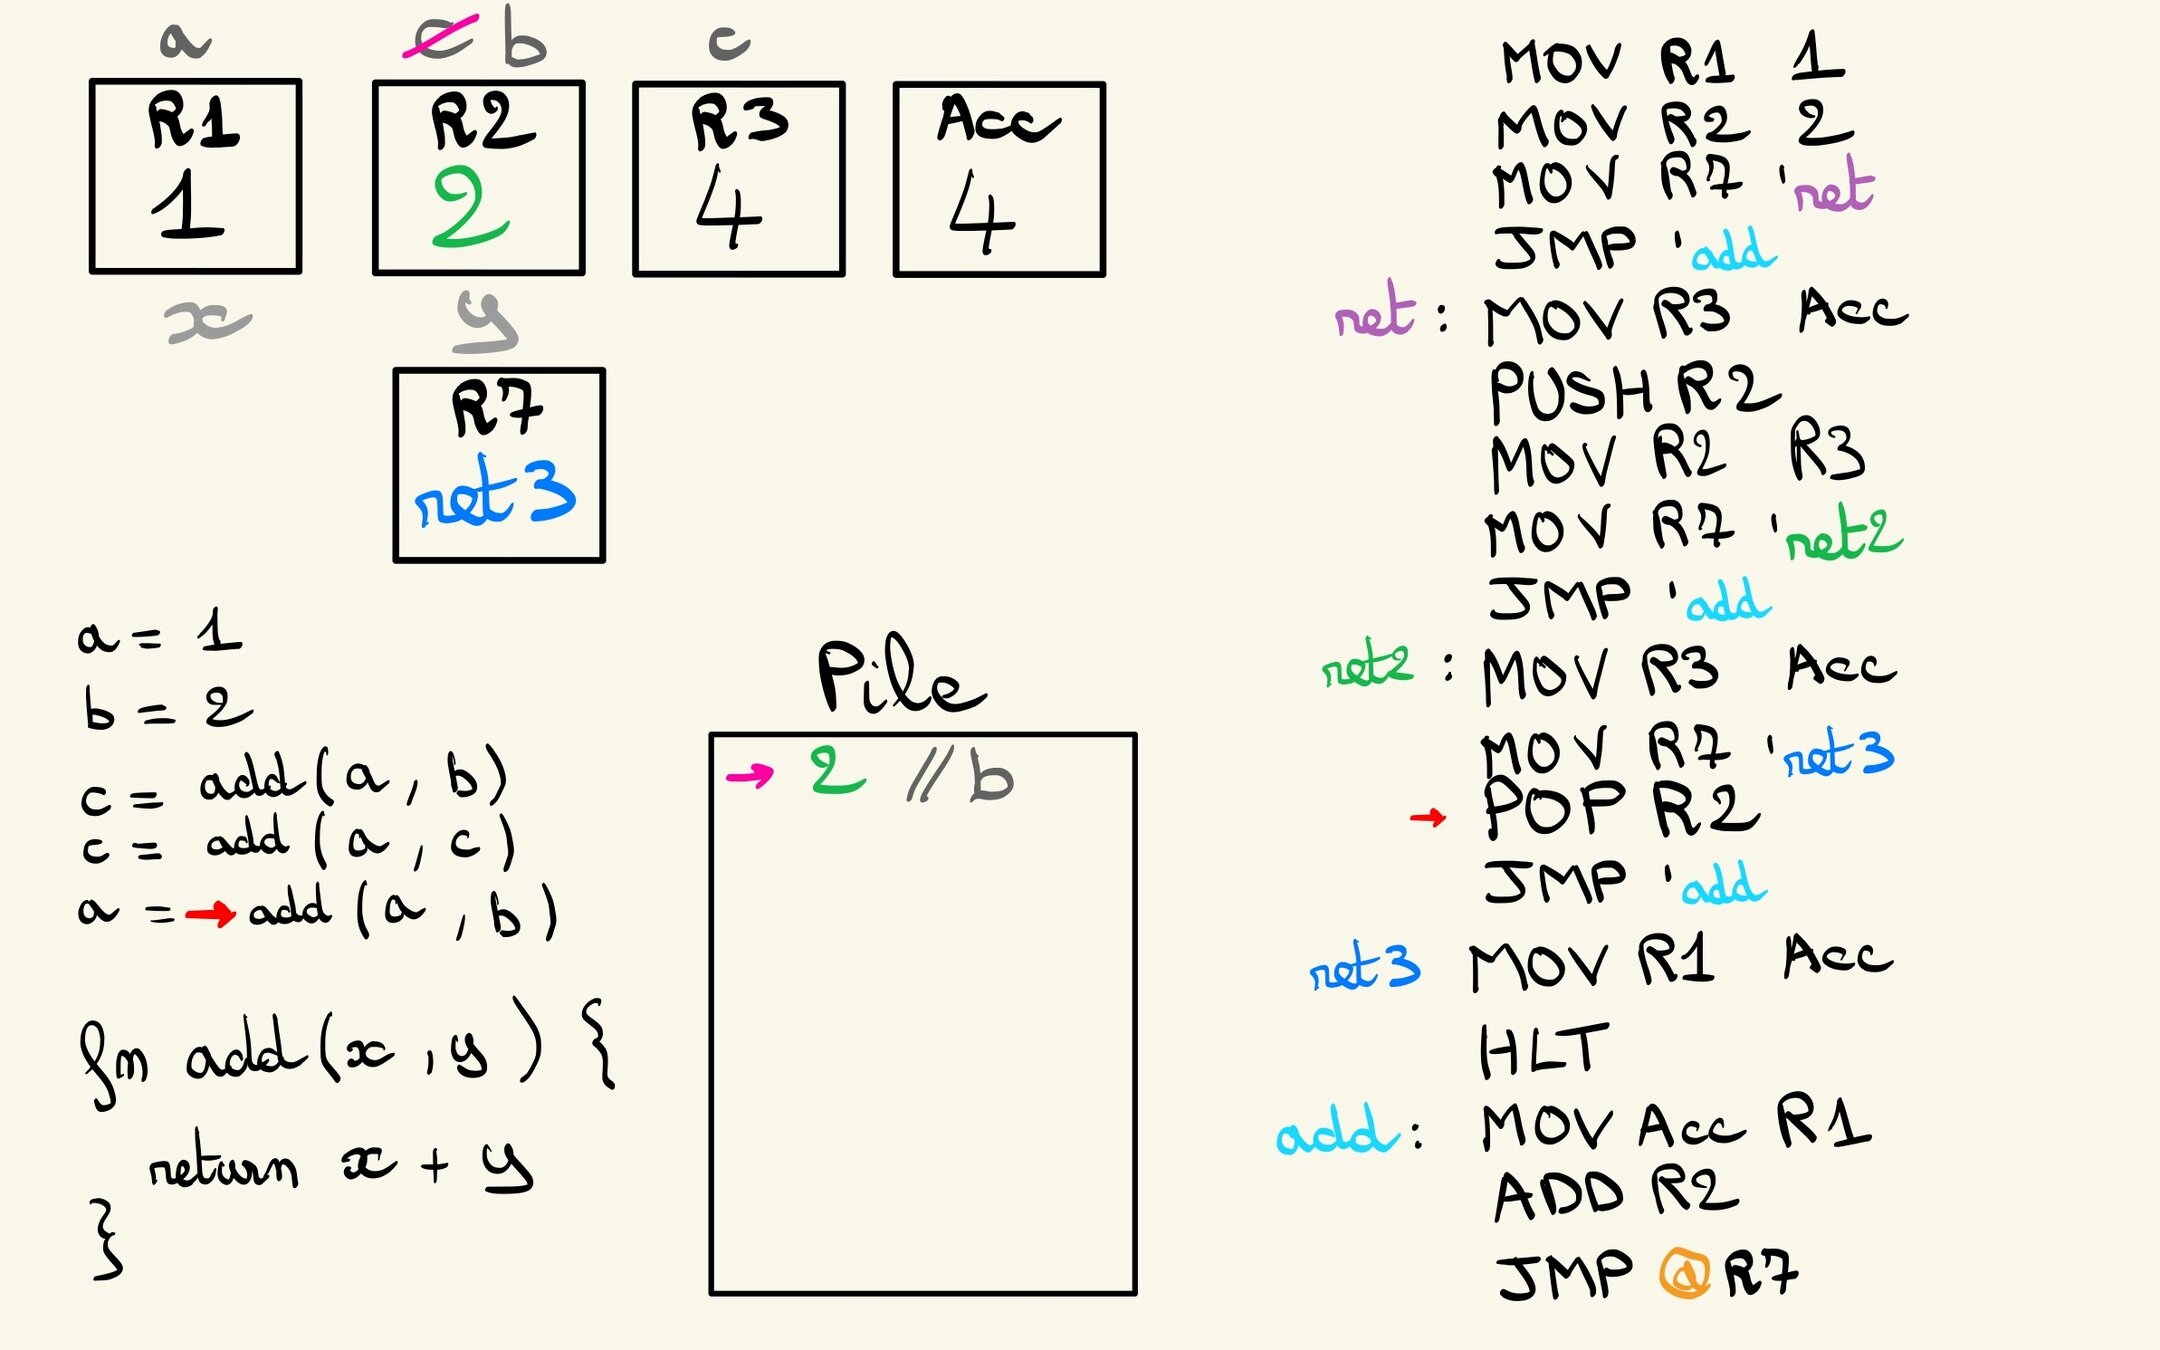 a
c b
c
R1
1
R2
2
R3
4
Acc
4
x
y
R7
ret3
a = 1
b = 2
c = add(a, b)
c = add(a, c)
a = → add(a, b)
fn add(x, y) {
return x + y
}
Pile
→ 2 // b
MOV R1 1
MOV R2 2
MOV R7 'ret
JMP 'add
ret : MOV R3 Acc
PUSH R2
MOV R2 R3
MOV R7 'ret2
JMP 'add
ret2 : MOV R3 Acc
MOV R7 'ret3
→ POP R2
JMP 'add
ret3 MOV R1 Acc
HLT
add : MOV Acc R1
ADD R2
JMP @R7